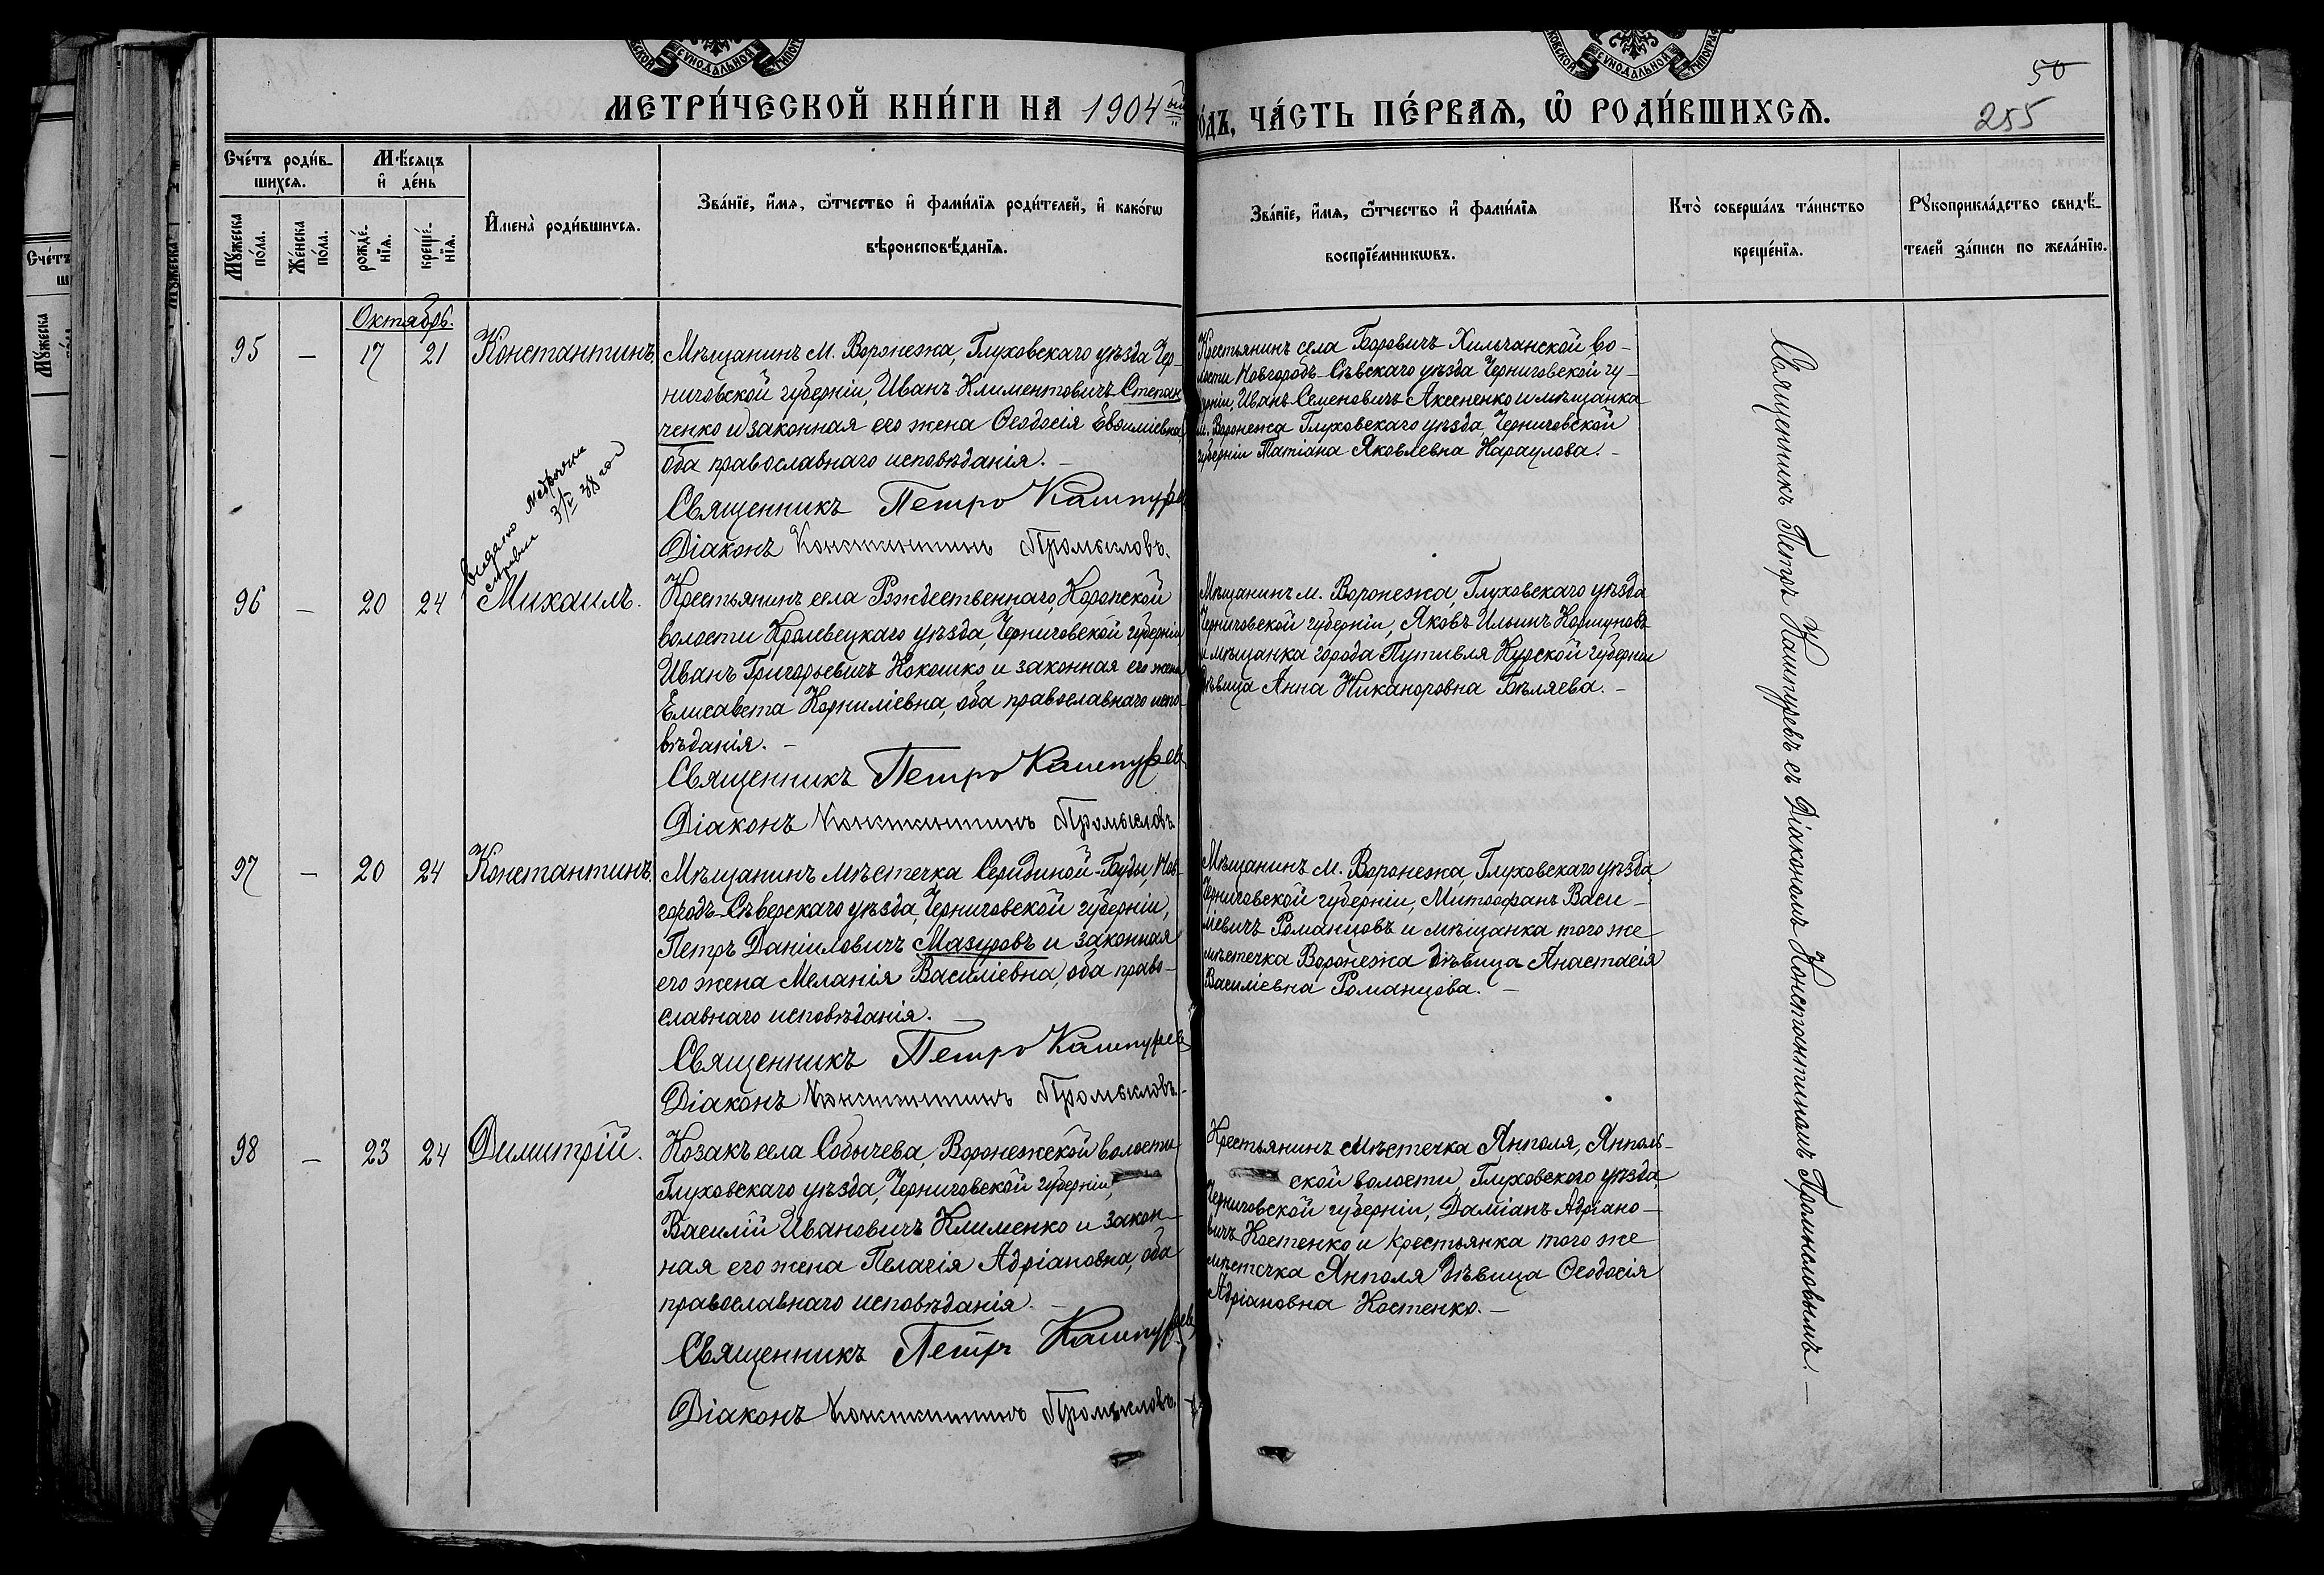 МЕТРИ́ЧЕСКОЙ КНИ́ГИ НА 1904ый
ГО́ДЪ, ЧА́СТЬ ПЕ́РВАѦ, Ѡ РОДИ́ВШИХСѦ.
50
255
Сче́тъ роди́в-
шихсѧ.
Мѣ́сѧцъ
и҆ де́нь
Мꙋ́жеска
по́ла.
Же́нска
по́ла.
рожде́-
нїѧ.
креще́-
нїѧ.
И҆мена̀ роди́вшихсѧ.
Зва́нїе, и҆́мѧ, ѻ҆́тчество и҆ фами́лїѧ роди́телей, и҆ како́гѡ
вѣроисповѣ́данїѧ.
Зва́нїе, и҆́мѧ, ѻ҆́тчество и҆ фами́лїѧ
воспрїе́мникѡвъ.
Кто̀ соверша́лъ та́инство
креще́нїѧ.
Рꙋкоприкла́дство свидѣ́-
телей за́писи по жела́нїю.
Октябрь.
95 — 17 21 Константинъ.
Мѣщанинъ м. Воронежа, Глуховскаго уѣзда Чер-
ниговской губерніи, Иванъ Климентовичъ Степан
ченко и законная его жена Ѳеодосія Евѳиміевна,
оба православнаго исповѣданія. —
Священникъ Петръ Кашпуревъ
Діаконъ Константинъ Промысловъ.
Крестьянинъ села Боровичъ Хильчанской во-
лости Новгородъ-Сѣвскаго уѣзда Черниговской гу-
берніи, Иванъ Семеновичъ Аксененко и мѣщанка
м. Воронежа Глуховскаго уѣзда Черниговской
губерніи Татіана Яковлевна Караулова. —
96 — 20 24 Михаилъ.
Крестьянинъ села Рождественнаго, Коропской
волости Кролевецкаго уѣзда, Черниговской губерніи
Иванъ Григорьевичъ Кокошко и законная его жена
Елисавета Корниліевна, оба православнаго испо-
вѣданія. —
Священникъ Петръ Кашпуревъ
Діаконъ Константинъ Промысловъ
Мѣщанинъ м. Воронежа, Глуховскаго уѣзда
Черниговской губерніи, Яковъ Ильинъ Коршуновъ
и мѣщанка города Путивля Курской губерніи
дѣвица Анна Никаноровна Бѣляева. —
97 — 20 24 Константинъ.
Мѣщанинъ мѣстечка Середной-Буды, Нов-
городъ-Сѣверскаго уѣзда, Черниговской губерніи,
Петръ Даніиловичъ Мазуровъ и законная
его жена Меланія Василіевна, оба право-
славнаго исповѣданія. —
Священникъ Петръ Кашпуревъ
Діаконъ Константинъ Промысловъ.
Мѣщанинъ м. Воронежа, Глуховскаго уѣзда
Черниговской губерніи, Митрофанъ Васи-
ліевичъ Романцовъ и мѣщанка того же
мѣстечка Воронежа дѣвица Анастасія
Василіевна Романцова. —
98 — 23 24 Димитрій.
Козакъ села Собычева, Воронежской волости
Глуховскаго уѣзда, Черниговской губерніи,
Василій Ивановичъ Клименко и закон-
ная его жена Пелагія Адріановна, оба
православнаго исповѣданія. —
Священникъ Петръ Кашпуревъ
Діаконъ Константинъ Промысловъ.
Крестьянинъ мѣстечка Янполя, Янполь-
ской волости, Глуховского уѣзда,
Черниговской губерніи, Даміанъ Адріано-
вичъ Костенко и крестьянка того же
мѣстечка Янполя дѣвица Ѳеодосія
Адріановна Костенко. —
Священникъ Петръ Кашпуревъ съ Діакономъ Константиномъ Промысловымъ. —